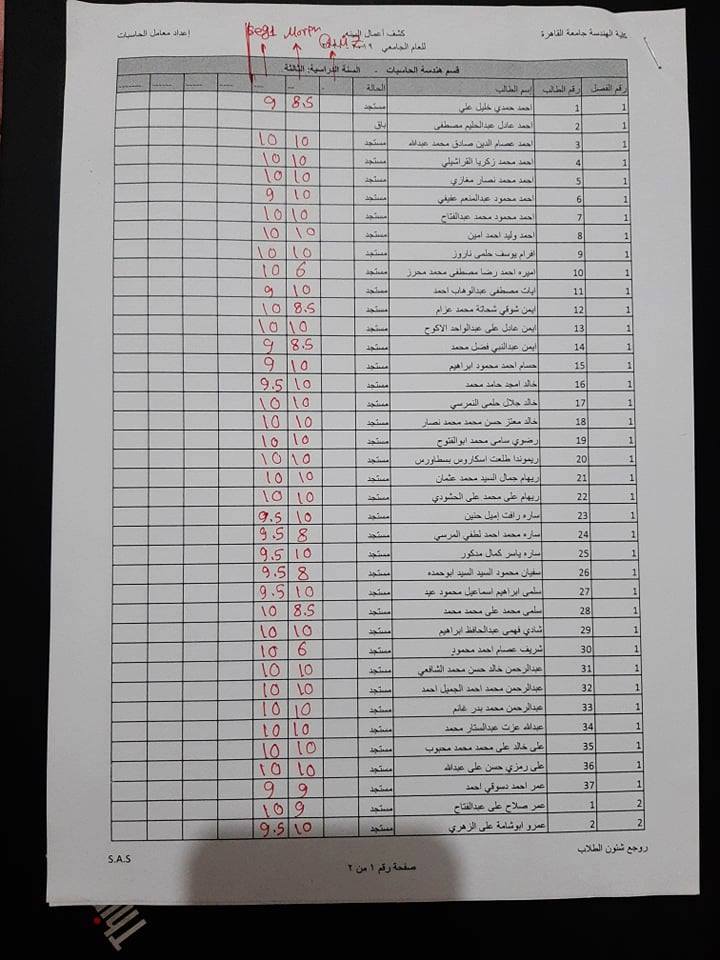 كلية الهندسة جامعة القاهرة كشف أعمال السنه إعداد معامل الحاسبات
للعام الجامعي ٢٠١٩
قسم هندسة الحاسبات - السنة الدراسية: الثالثة
رقم الفصل رقم الطالب إسم الطالب الحالة
1 1 احمد حمدي خليل علي مستجد 8.5 9
1 2 احمد عادل عبدالحليم مصطفى باق
1 3 احمد عصام الدين صادق محمد عبدالله مستجد 10 10
1 4 احمد محمد زكريا القراشيلي مستجد 10 10
1 5 احمد محمد نصار مغازي مستجد 10 10
1 6 احمد محمود عبدالمنعم عفيفي مستجد 10 9
1 7 احمد محمود محمد عبدالفتاح مستجد 10 10
1 8 احمد وليد احمد امين مستجد 10 10
1 9 افرام يوسف حلمى ناروز مستجد 10 10
1 10 اميره احمد رضا مصطفى محمد محرز مستجد 6 10
1 11 ايات مصطفى عبدالوهاب احمد مستجد 10 9
1 12 ايمن شوقي شحاتة محمد عزام مستجد 8.5 10
1 13 ايمن عادل على عبدالواحد الاكوح مستجد 10 10
1 14 ايمن عبدالنبي فضل محمد مستجد 8.5 9
1 15 حسام احمد محمود ابراهيم مستجد 10 9
1 16 خالد امجد حامد محمد مستجد 10 9.5
1 17 خالد جلال حلمى النمرسي مستجد 10 10
1 18 خالد معتز حسن محمد محمد نصار مستجد 10 10
1 19 رضوي سامى محمد ابوالفتوح مستجد 10 10
1 20 ريموندا طلعت اسكاروس بسطاورس مستجد 10 10
1 21 ريهام جمال السيد محمد عثمان مستجد 10 10
1 22 ريهام على محمد على الحشودي مستجد 10 10
1 23 ساره رافت إميل حنين مستجد 10 9.5
1 24 ساره محمد احمد لطفي المرسي مستجد 8 9.5
1 25 ساره ياسر كمال مدكور مستجد 10 9.5
1 26 سفيان محمود السيد السيد ابوحمده مستجد 8 9.5
1 27 سلمى ابراهيم اسماعيل محمود عيد مستجد 10 9.5
1 28 سلمى محمد على محمد محمد مستجد 8.5 10
1 29 شادي فهمى عبدالحافظ ابراهيم مستجد 10 10
1 30 شريف عصام احمد محمود مستجد 6 10
1 31 عبدالرحمن خالد حسن محمد الشافعي مستجد 10 10
1 32 عبدالرحمن محمد احمد الجميل احمد مستجد 10 10
1 33 عبدالرحمن محمد بدر غانم مستجد 10 10
1 34 عبدالله عزت عبدالستار محمد مستجد 10 10
1 35 على خالد على محمد محمد محبوب مستجد 10 10
1 36 على رمزي حسن على عبدالله مستجد 10 10
1 37 عمر احمد دسوقي احمد مستجد 9 9
2 1 عمر صلاح على عبدالفتاح مستجد 9 10
2 2 عمرو ابوشامة على الزهري مستجد 10 9.5
روجع شئون الطلاب
صفحة رقم ١ من ٢
S.A.S
Thi